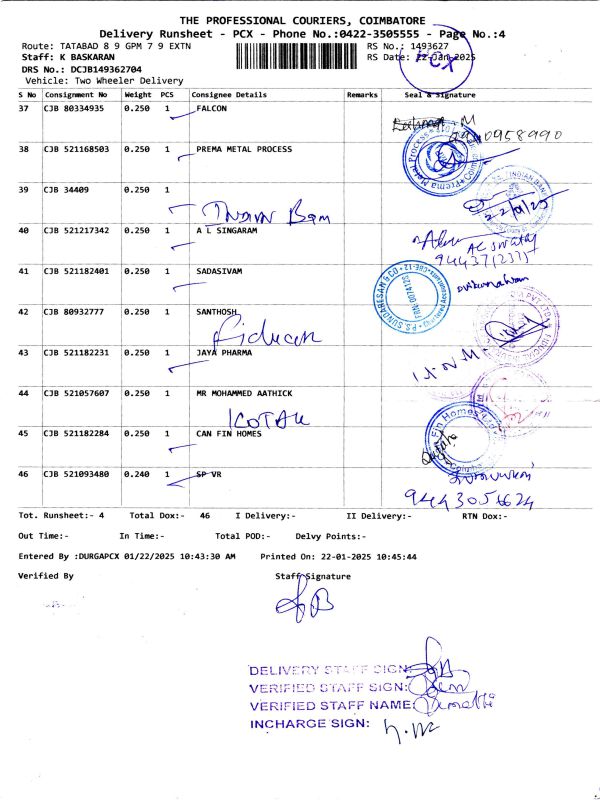 THE PROFESSIONAL COURIERS, COIMBATORE
Delivery Runsheet - PCX - Phone No.:0422-3505555 - Page No.:4
Route: TATABAD 8 9 GPM 7 9 EXTN RS No.: 1493627
Staff: K BASKARAN RS Date: 22-Jan-2025
PCX
DRS No.: DCJB149362704
Vehicle: Two Wheeler Delivery
S No Consignment No Weight PCS Consignee Details Remarks Seal & Signature
37 CJB 80334935 0.250 1 FALCON
38 CJB 521168503 0.250 1 PREMA METAL PROCESS
Prema Metal Process
39 CJB 34409 0.250 1
INDIAN BANK
22/01/25
40 CJB 521217342 0.250 1 A L SINGARAM
41 CJB 521182401 0.250 1 SADASIVAM
P.S. SUNDARESAN & CO CBE-12
Chartered Accountants
FRN: 007412S
42 CJB 80932777 0.250 1 SANTHOSH
43 CJB 521182231 0.250 1 JAYA PHARMA
44 CJB 521057607 0.250 1 MR MOHAMMED AATHICK
KOTAK
45 CJB 521182284 0.250 1 CAN FIN HOMES
Fin Homes Ltd
46 CJB 521093480 0.240 1 SP VR
94430 56624
Tot. Runsheet:- 4 Total Dox:- 46 I Delivery:- II Delivery:- RTN Dox:-
Out Time:- In Time:- Total POD:- Delvy Points:-
Entered By :DURGAPCX 01/22/2025 10:43:30 AM Printed On: 22-01-2025 10:45:44
Verified By Staff Signature
DELIVERY STAFF SIGN:
VERIFIED STAFF SIGN:
VERIFIED STAFF NAME:
INCHARGE SIGN: